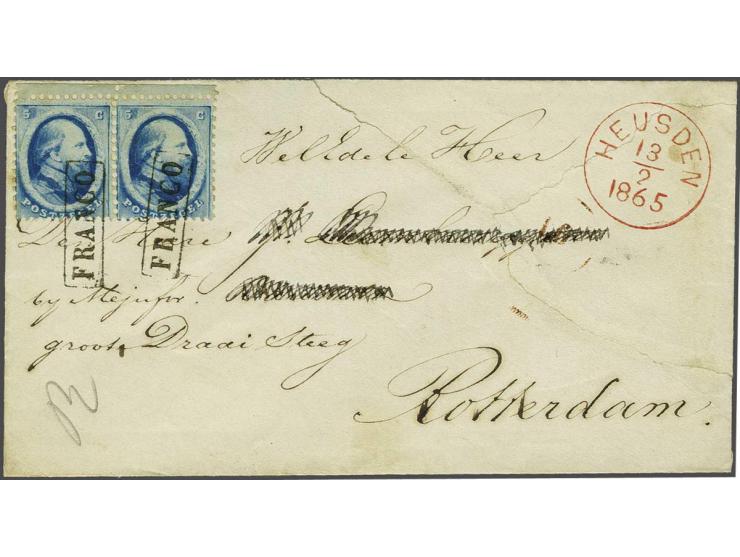 5 C
POSTZEGEL
5 C
POSTZEGEL
FRANCO
FRANCO
HEUSDEN
13
2
1865
WelEdele Heer
De Heer
by Mejufvr.
groote Draai Steeg
Rotterdam.